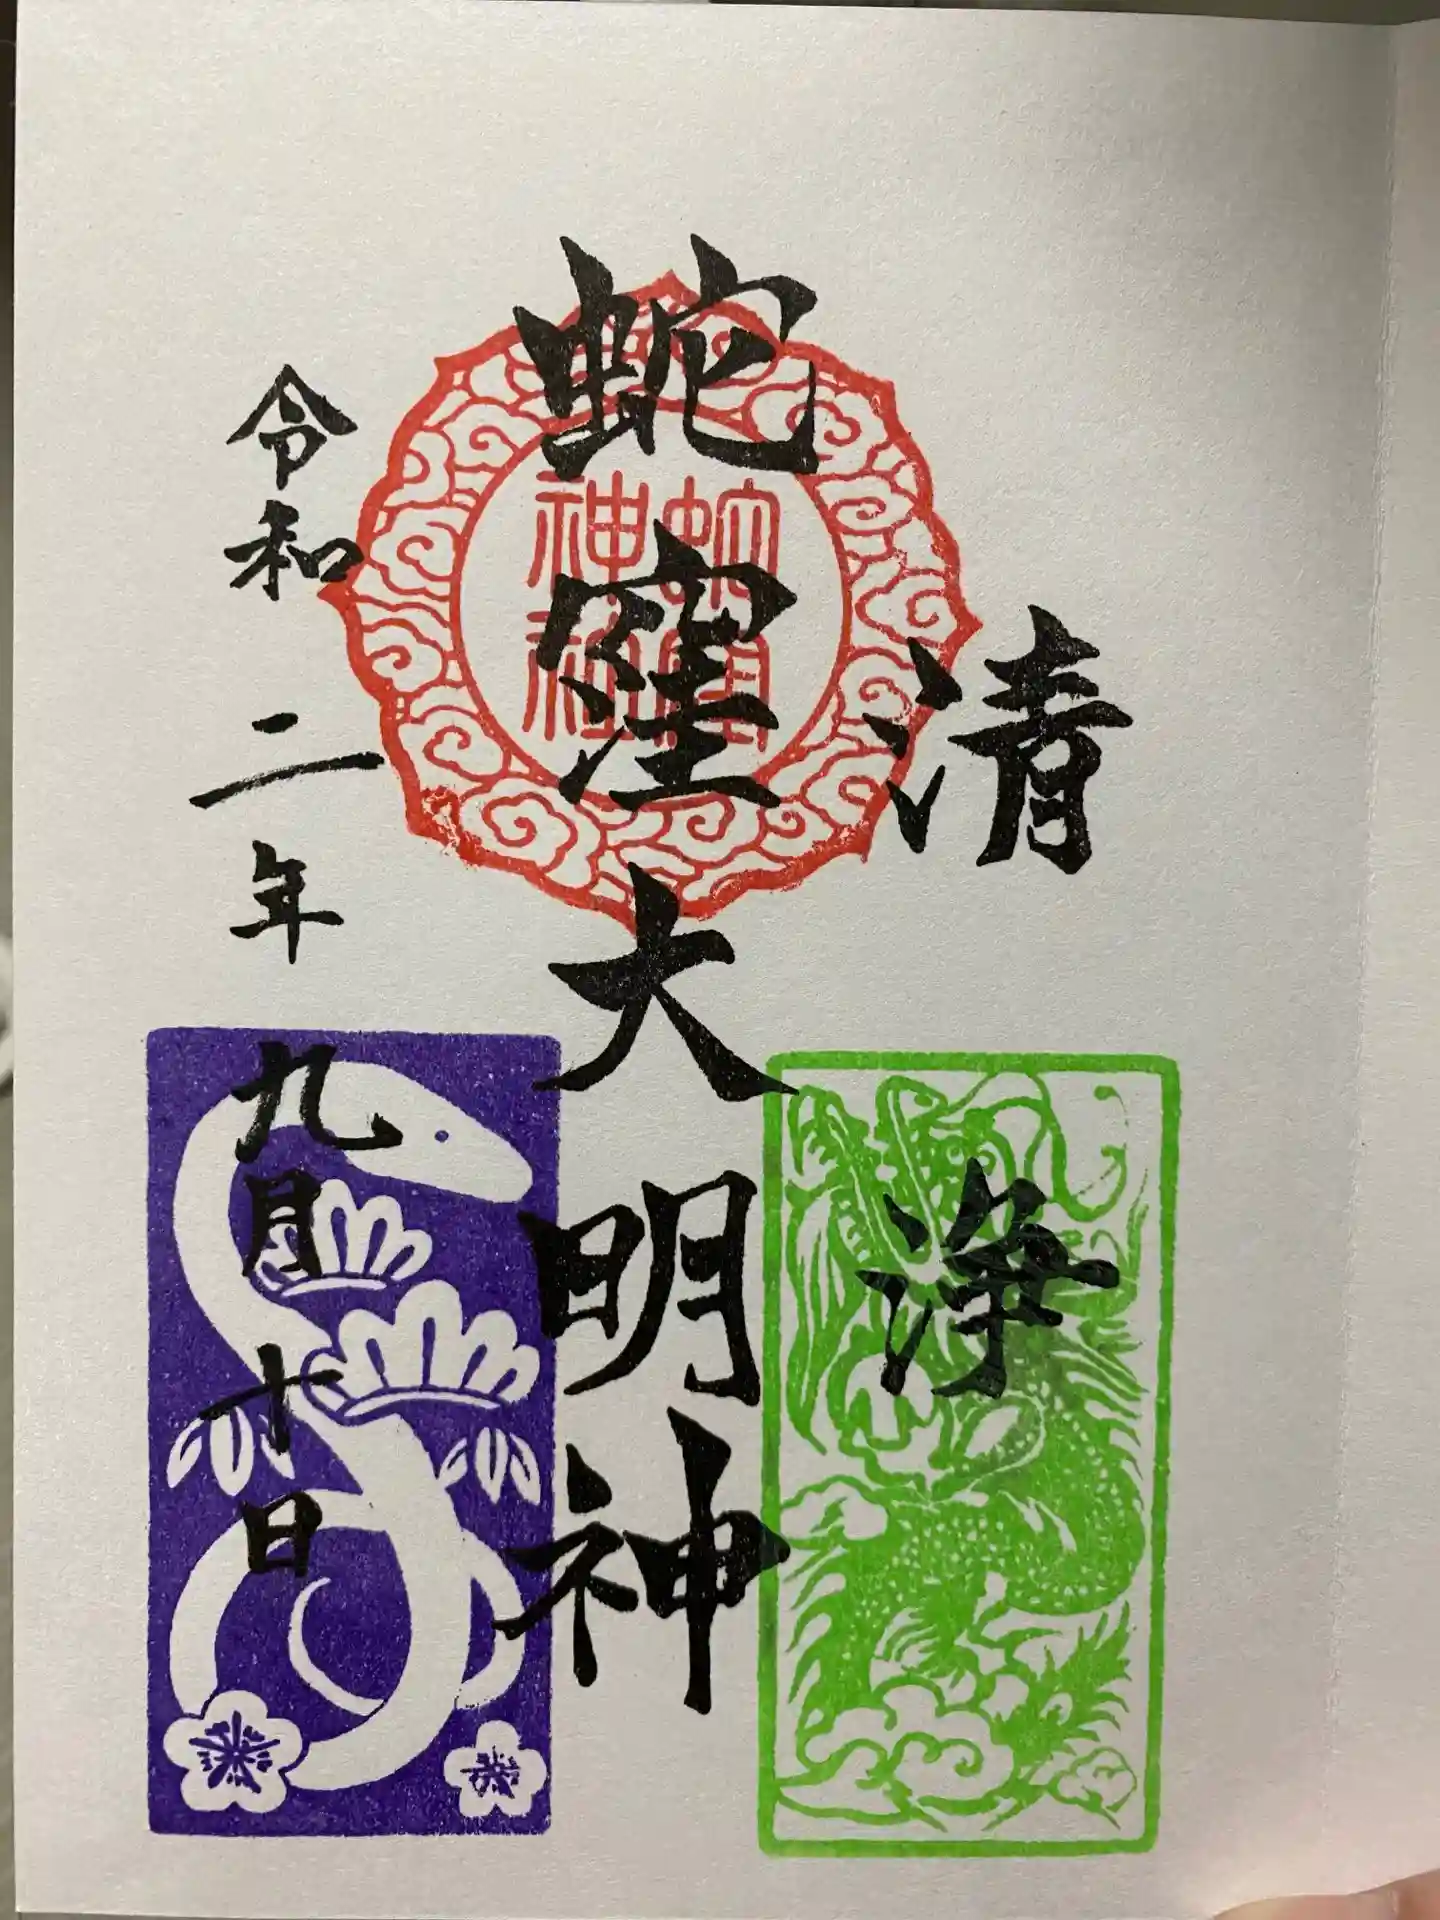 清浄
蛇窪大明神
令和二年九月十日
蛇窪
神社